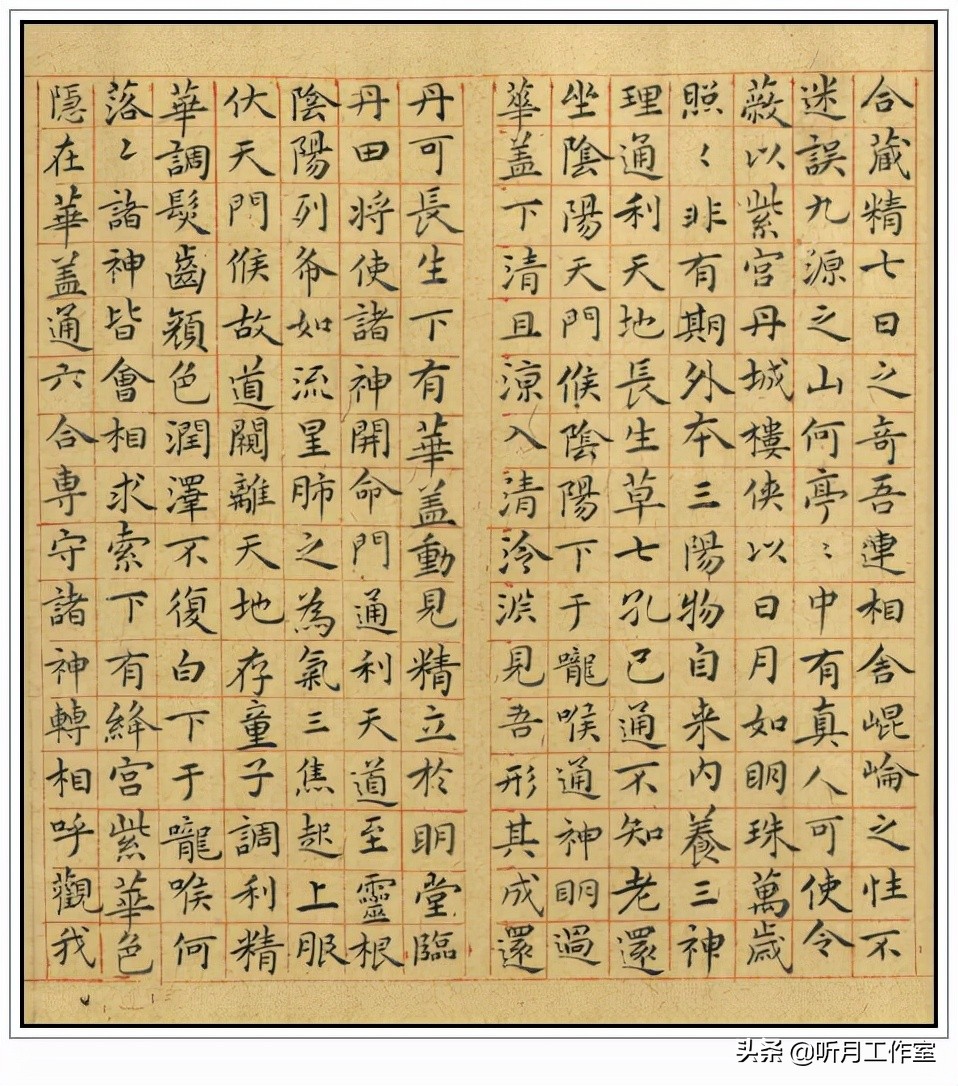 合藏精七日之奇吾連相舍崐崘之性不
迷誤九源之山何亭〻中有真人可使令
蔽以紫宮丹城樓侠以日月如明珠萬歲
照〻非有期外本三陽物自来内養三神
理通利天地長生草七孔已通不知老還
坐陰陽天門候陰陽下于嚨喉通神明過
華盖下清且涼入清泠淵見吾形其成還
丹可長生下有華盖動見精立於明堂臨
丹田将使諸神開命門通利天道至靈根
陰陽列布如流星肺之為氣三焦起上服
伏天門候故道闚離天地存童子調利精
華調髮齒顏色潤澤不復白下于嚨喉何
落〻諸神皆會相求索下有絳宮紫華色
隱在華盖通六合専守諸神轉相呼觀我
头条 @听月工作室